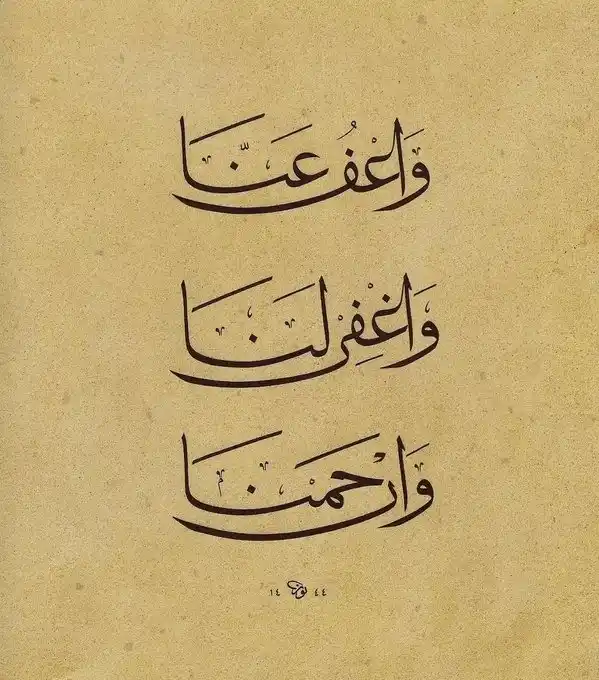 وَاعْفُ عَنَّا
وَاغْفِرْ لَنَا
وَارْحَمْنَا
١٤ ٤٤